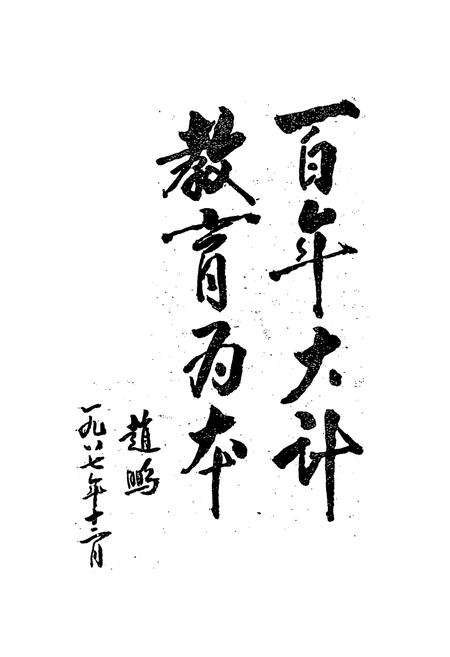 百年大计
教育为本
趙鹏
一九八七年十二月